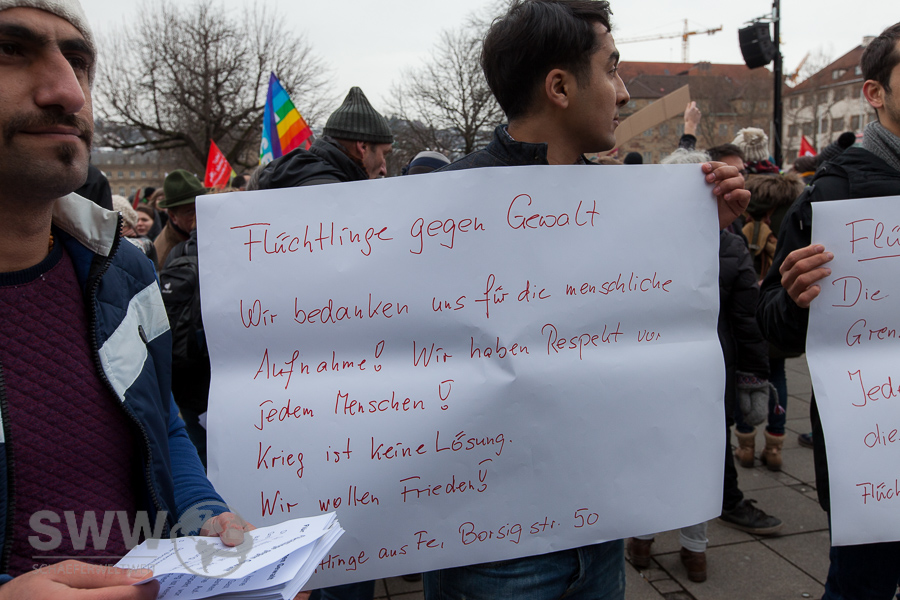 Flüchtlinge gegen Gewalt
Wir bedanken uns für die menschliche
Aufnahme! Wir haben Respekt vor
jedem Menschen!
Krieg ist keine Lösung.
Wir wollen Frieden!
tlinge aus Fe, Borsigstr. 50
Flü
Die
Gren
Jede
dies
Flüch
SWW